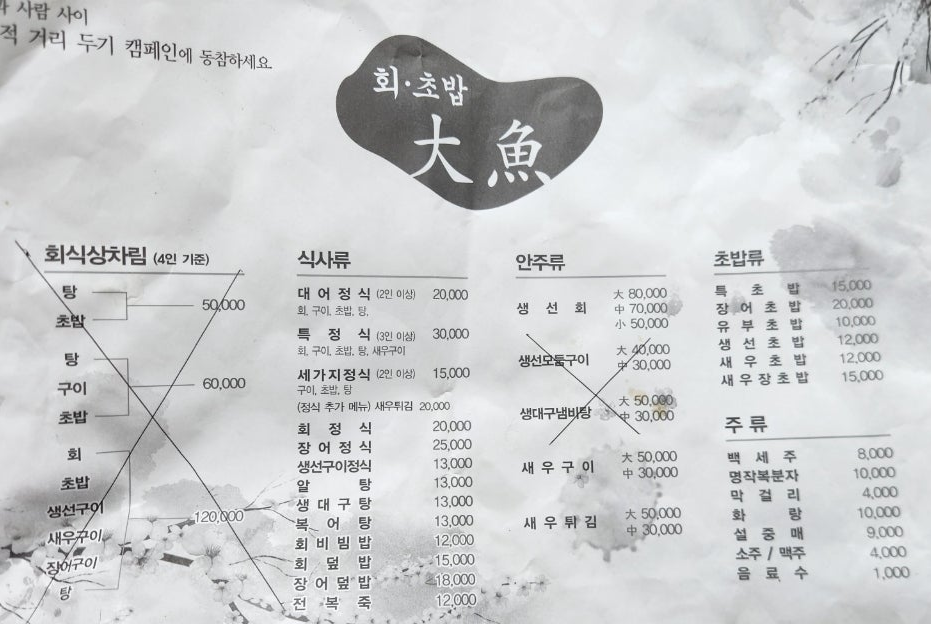 사람 사이
적 거리 두기 캠페인에 동참하세요
회·초밥
大魚
회식상차림 (4인 기준)
탕
초밥
50,000
탕
구이
초밥
60,000
회
초밥
생선구이
새우구이
장어구이
탕
120,000
식사류
대어정식 (2인 이상) 20,000
회, 구이, 초밥, 탕,
특정식 (3인 이상) 30,000
회, 구이, 초밥, 탕, 새우구이
세가지정식 (2인 이상) 15,000
구이, 초밥, 탕
(정식 추가 메뉴) 새우튀김 20,000
회정식 20,000
장어정식 25,000
생선구이정식 13,000
알탕 13,000
생대구탕 13,000
복어탕 13,000
회비빔밥 12,000
회덮밥 15,000
장어덮밥 18,000
전복죽 12,000
안주류
생선회 大 80,000
中 70,000
小 50,000
생선모둠구이 大 40,000
中 30,000
생대구냄비탕 大 50,000
中 30,000
새우구이 大 50,000
中 30,000
새우튀김 大 50,000
中 30,000
초밥류
특초밥 15,000
장어초밥 20,000
유부초밥 10,000
생선초밥 12,000
새우초밥 12,000
새우장초밥 15,000
주류
백세주 8,000
명작복분자 10,000
막걸리 4,000
화랑 10,000
설중매 9,000
소주 / 맥주 4,000
음료수 1,000